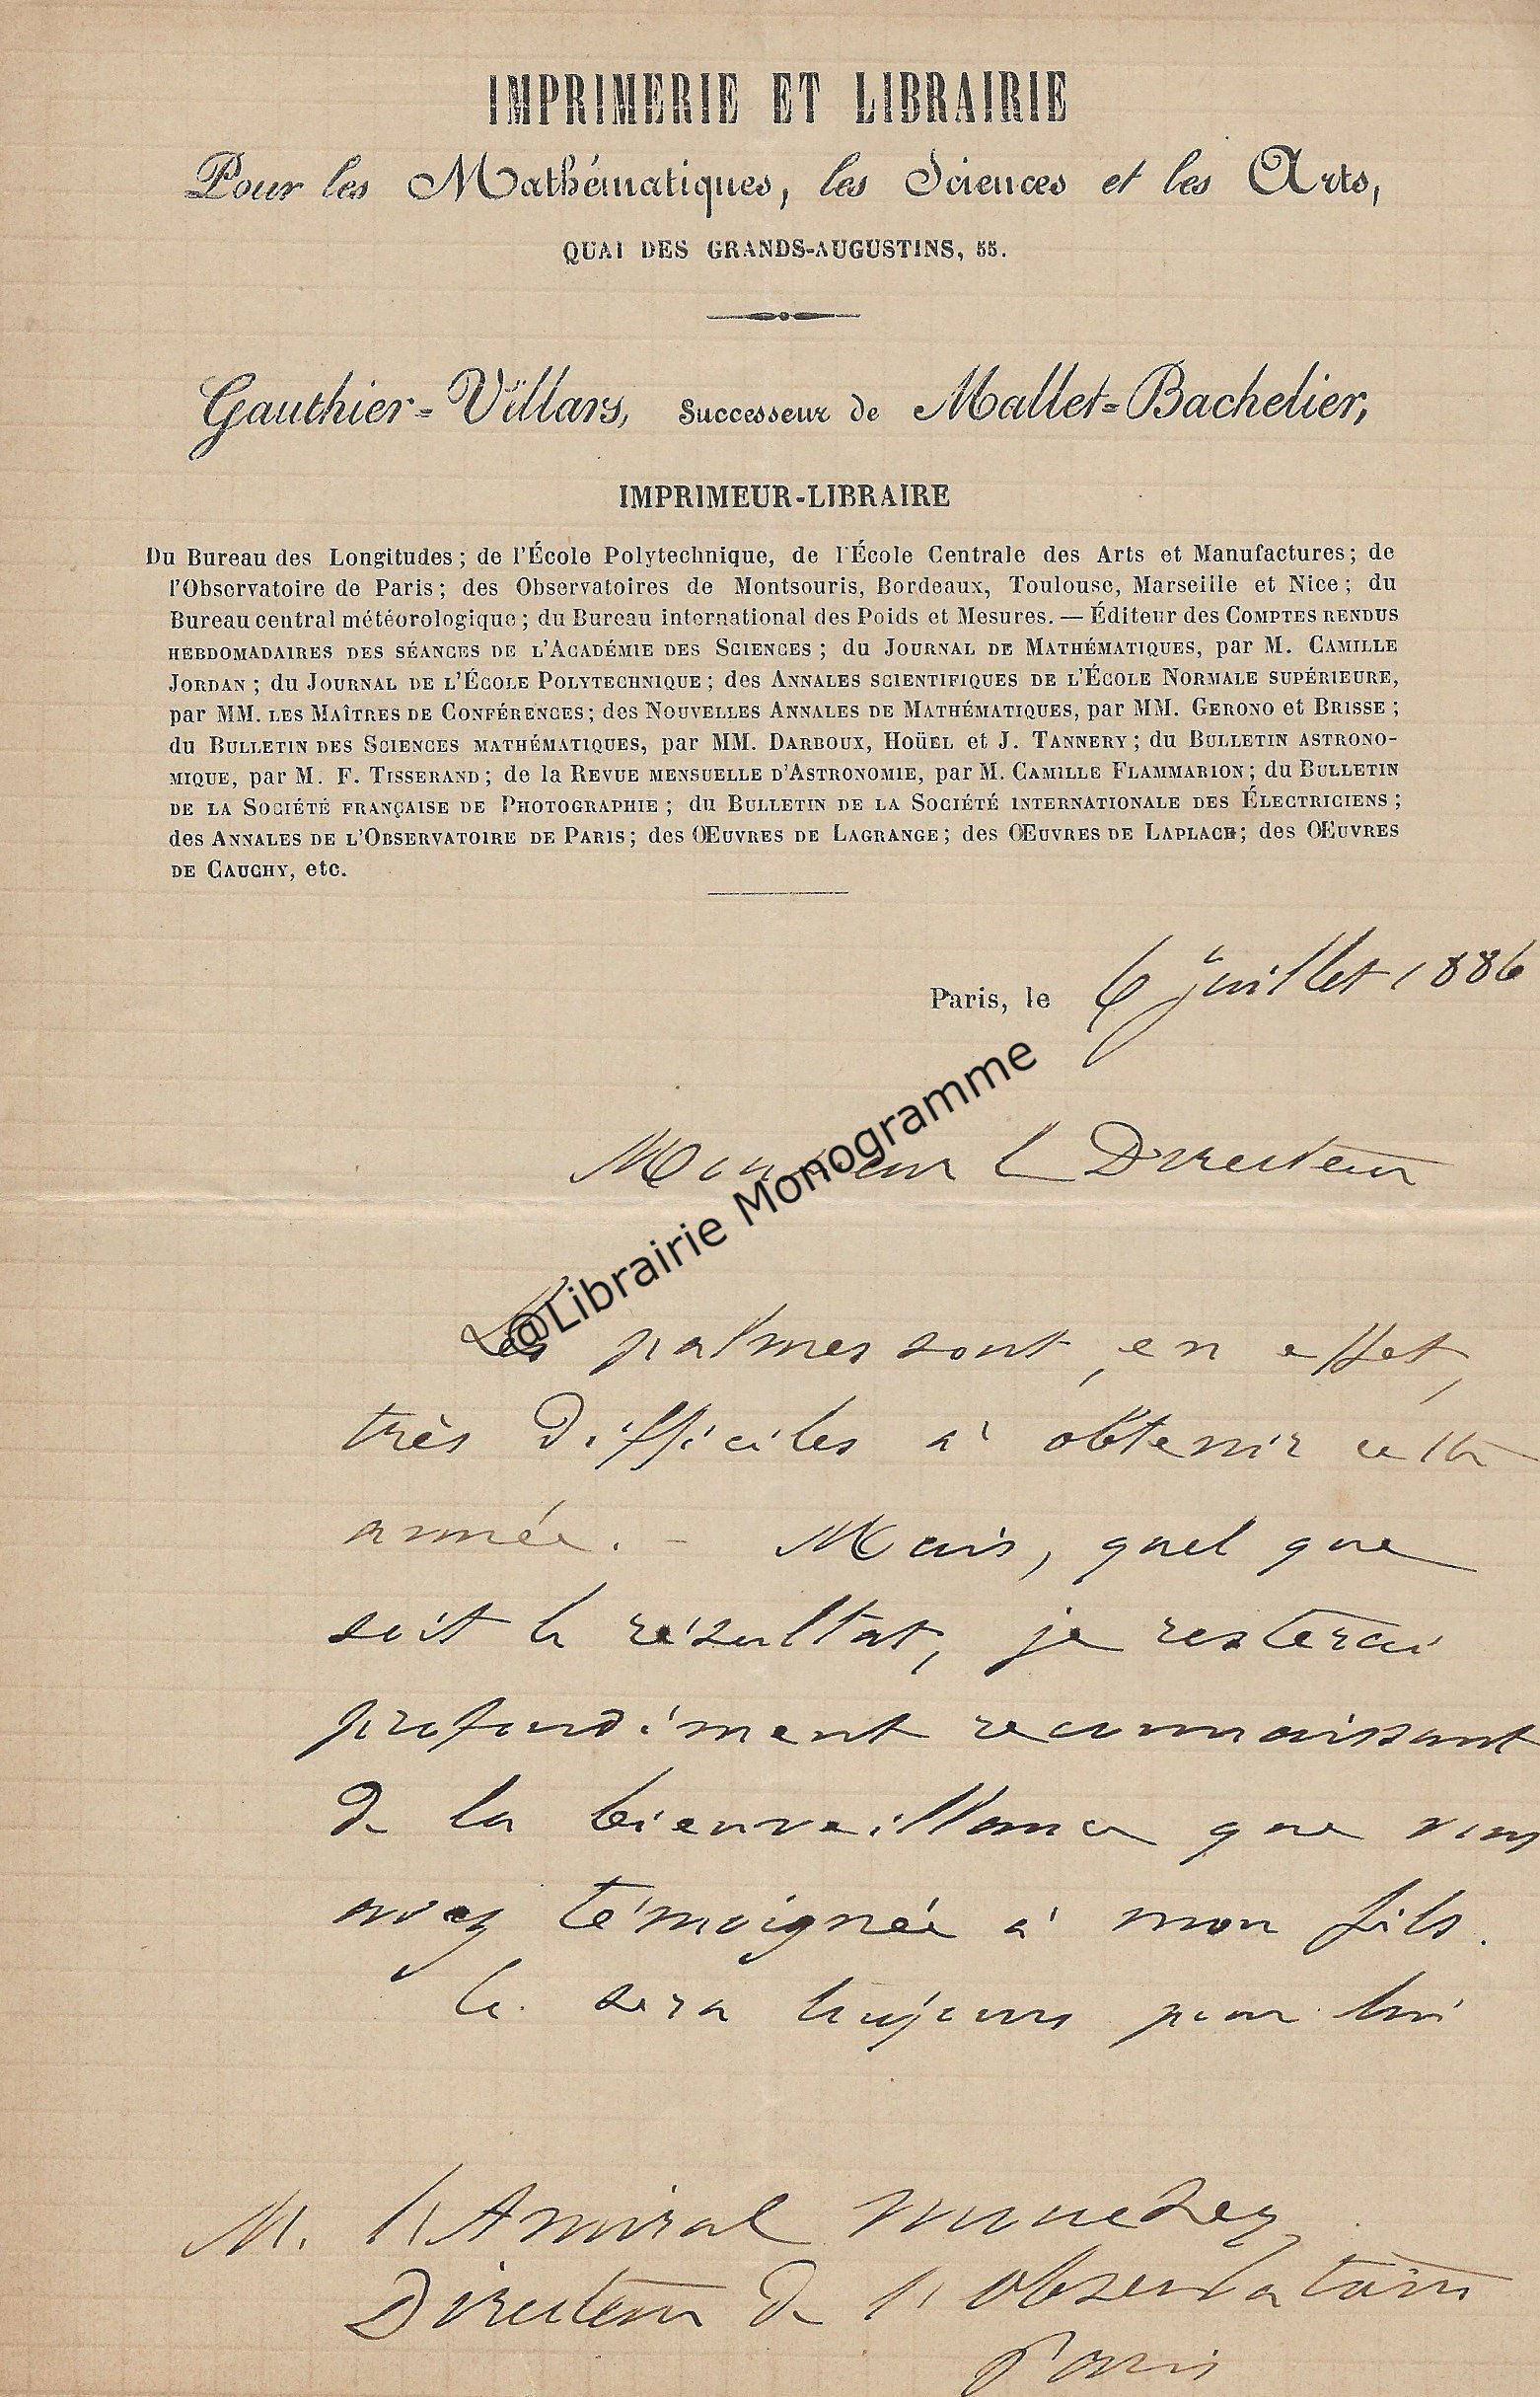 IMPRIMERIE ET LIBRAIRIE
Pour les Mathématiques, les Sciences et les Arts,
QUAI DES GRANDS-AUGUSTINS, 55.
Gauthier-Villars, Successeur de Mallet-Bachelier,
IMPRIMEUR-LIBRAIRE
Du Bureau des Longitudes; de l'École Polytechnique, de l'École Centrale des Arts et Manufactures; de
l'Observatoire de Paris; des Observatoires de Montsouris, Bordeaux, Toulouse, Marseille et Nice; du
Bureau central météorologique; du Bureau international des Poids et Mesures. — Éditeur des COMPTES RENDUS
HEBDOMADAIRES DES SÉANCES DE L'ACADÉMIE DES SCIENCES; du JOURNAL DE MATHÉMATIQUES, par M. CAMILLE
JORDAN; du JOURNAL DE L'ÉCOLE POLYTECHNIQUE; des ANNALES SCIENTIFIQUES DE L'ÉCOLE NORMALE SUPÉRIEURE,
par MM. LES MAÎTRES DE CONFÉRENCES; des NOUVELLES ANNALES DE MATHÉMATIQUES, par MM. GERONO et BRISSE;
du BULLETIN DES SCIENCES MATHÉMATIQUES, par MM. DARBOUX, HOÜEL et J. TANNERY; du BULLETIN ASTRONO-
MIQUE, par M. F. TISSERAND; de la REVUE MENSUELLE D'ASTRONOMIE, par M. CAMILLE FLAMMARION; du BULLETIN
DE LA SOCIÉTÉ FRANÇAISE DE PHOTOGRAPHIE; du BULLETIN DE LA SOCIÉTÉ INTERNATIONALE DES ÉLECTRICIENS;
des ANNALES DE L'OBSERVATOIRE DE PARIS; des ŒUVRES DE LAGRANGE; des ŒUVRES DE LAPLACE; des ŒUVRES
DE CAUCHY, etc.
Paris, le 6 juillet 1886
Monsieur le Directeur
@Librairie Monogramme
Les palmes sont, en effet,
très difficiles à obtenir cette
année. - Mais, quel que
soit le résultat, je resterai
profondément reconnaissant
de la bienveillance que vous
avez témoignée à mon fils.
Ce sera toujours pour lui
M. l'Amiral Mouchez
Directeur de l'Observatoire
Paris